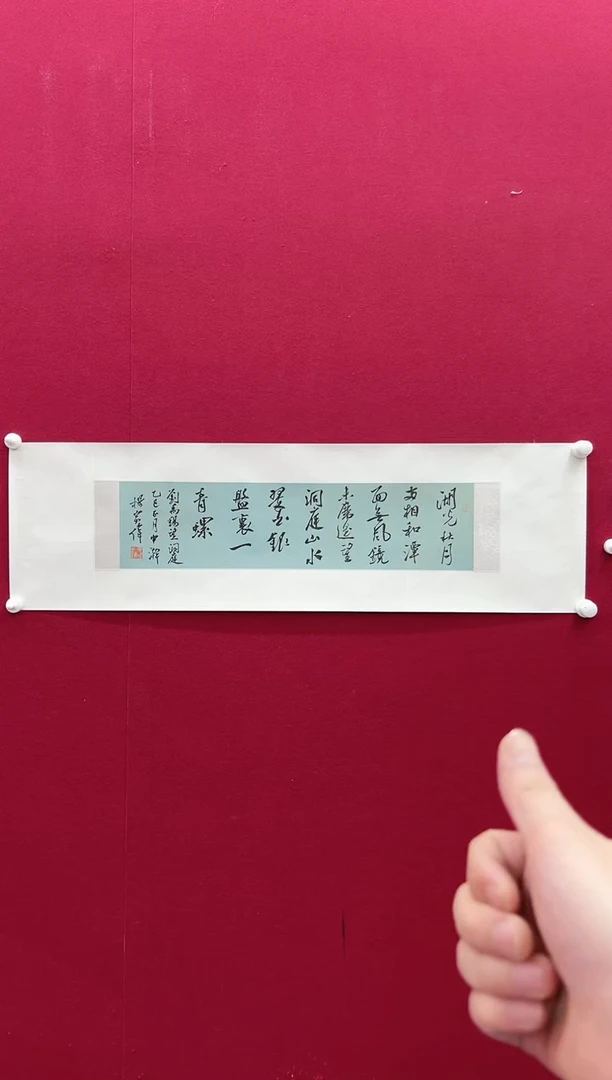 湖光秋月
兩相和潭
面無風鏡
未磨遥望
洞庭山水
翠白銀
盤裏一
青螺
劉禹錫望洞庭
乙巳正月中澣